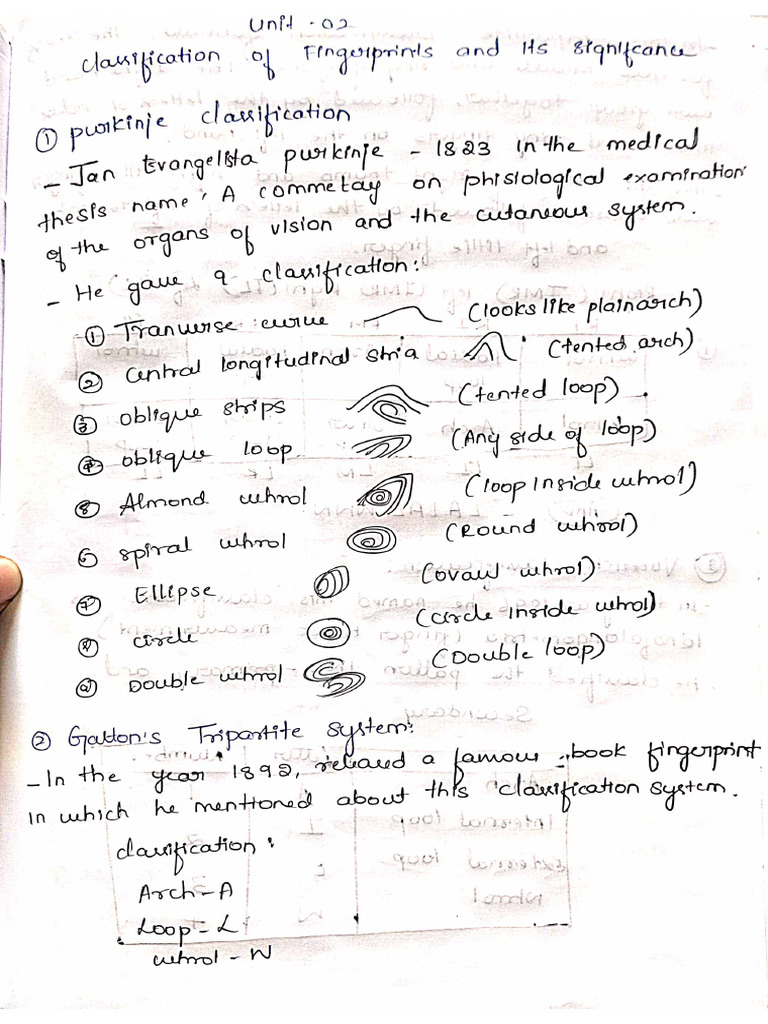 Unit - 02
Classification of Fingerprints and its Signifcance
① purkinje classification
- Jan Evangelista purkinje - 1823 in the medical
thesis name, A commetay on phisiological examination
of the organs of vision and the cutaneous system.
- He gave 9 classification:
① Tranverse curve (looks like plain arch)
② Central longitudinal stria (tented arch)
③ oblique strips (tented loop)
④ oblique loop (Any side of loop)
⑤ Almond whrol (loop inside whrol)
⑥ spiral whrol (Round whrol)
⑦ Ellipse (ovawl whrol)
⑧ circle (circle inside whrol)
⑨ Double whrol (Double loop)
② Galton's Tripartite system:
- In the year 1892, released a famous book fingerprint
in which he mentioned about this classification system.
classification:
Arch - A
Loop - L
whrol - W